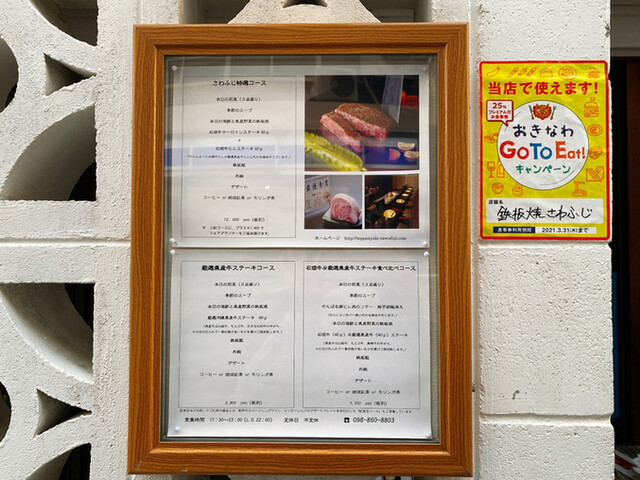 さわふじ特選コース
本日の前菜（３点盛り）
季節のスープ
本日の海鮮と県産野菜の鉄板焼
石垣牛サーロインステーキ 80ｇ
石垣牛ヒレステーキ 60ｇ
鉄板飯
お椀
デザート
コーヒー or 琉球紅茶 or モリンガ茶
12,000 yen（税別）
ホームページ http://teppanyaki-sawafuji.com
厳選県産牛ステーキコース
本日の前菜（３点盛り）
季節のスープ
本日の海鮮と県産野菜の鉄板焼
鉄板飯
お椀
デザート
コーヒー or 琉球紅茶 or モリンガ茶
5,800 yen（税別）
石垣牛&厳選県産牛ステーキ食べ比べコース
本日の前菜（３点盛り）
季節のスープ
本日の海鮮と県産野菜の鉄板焼
石垣牛（40ｇ）&厳選県産牛（40ｇ）ステーキ
鉄板飯
お椀
デザート
コーヒー or 琉球紅茶 or モリンガ茶
営業時間 17：30～23：00（L.O.22：00） 定休日 不定休 ☎ 098-860-8803
当店で使えます！
25%
プレミアム付
お食事券
おきなわ
Go To Eat!
キャンペーン
店舗名
鉄板焼さわふじ
食事券利用期間 2021.3.31(水)まで